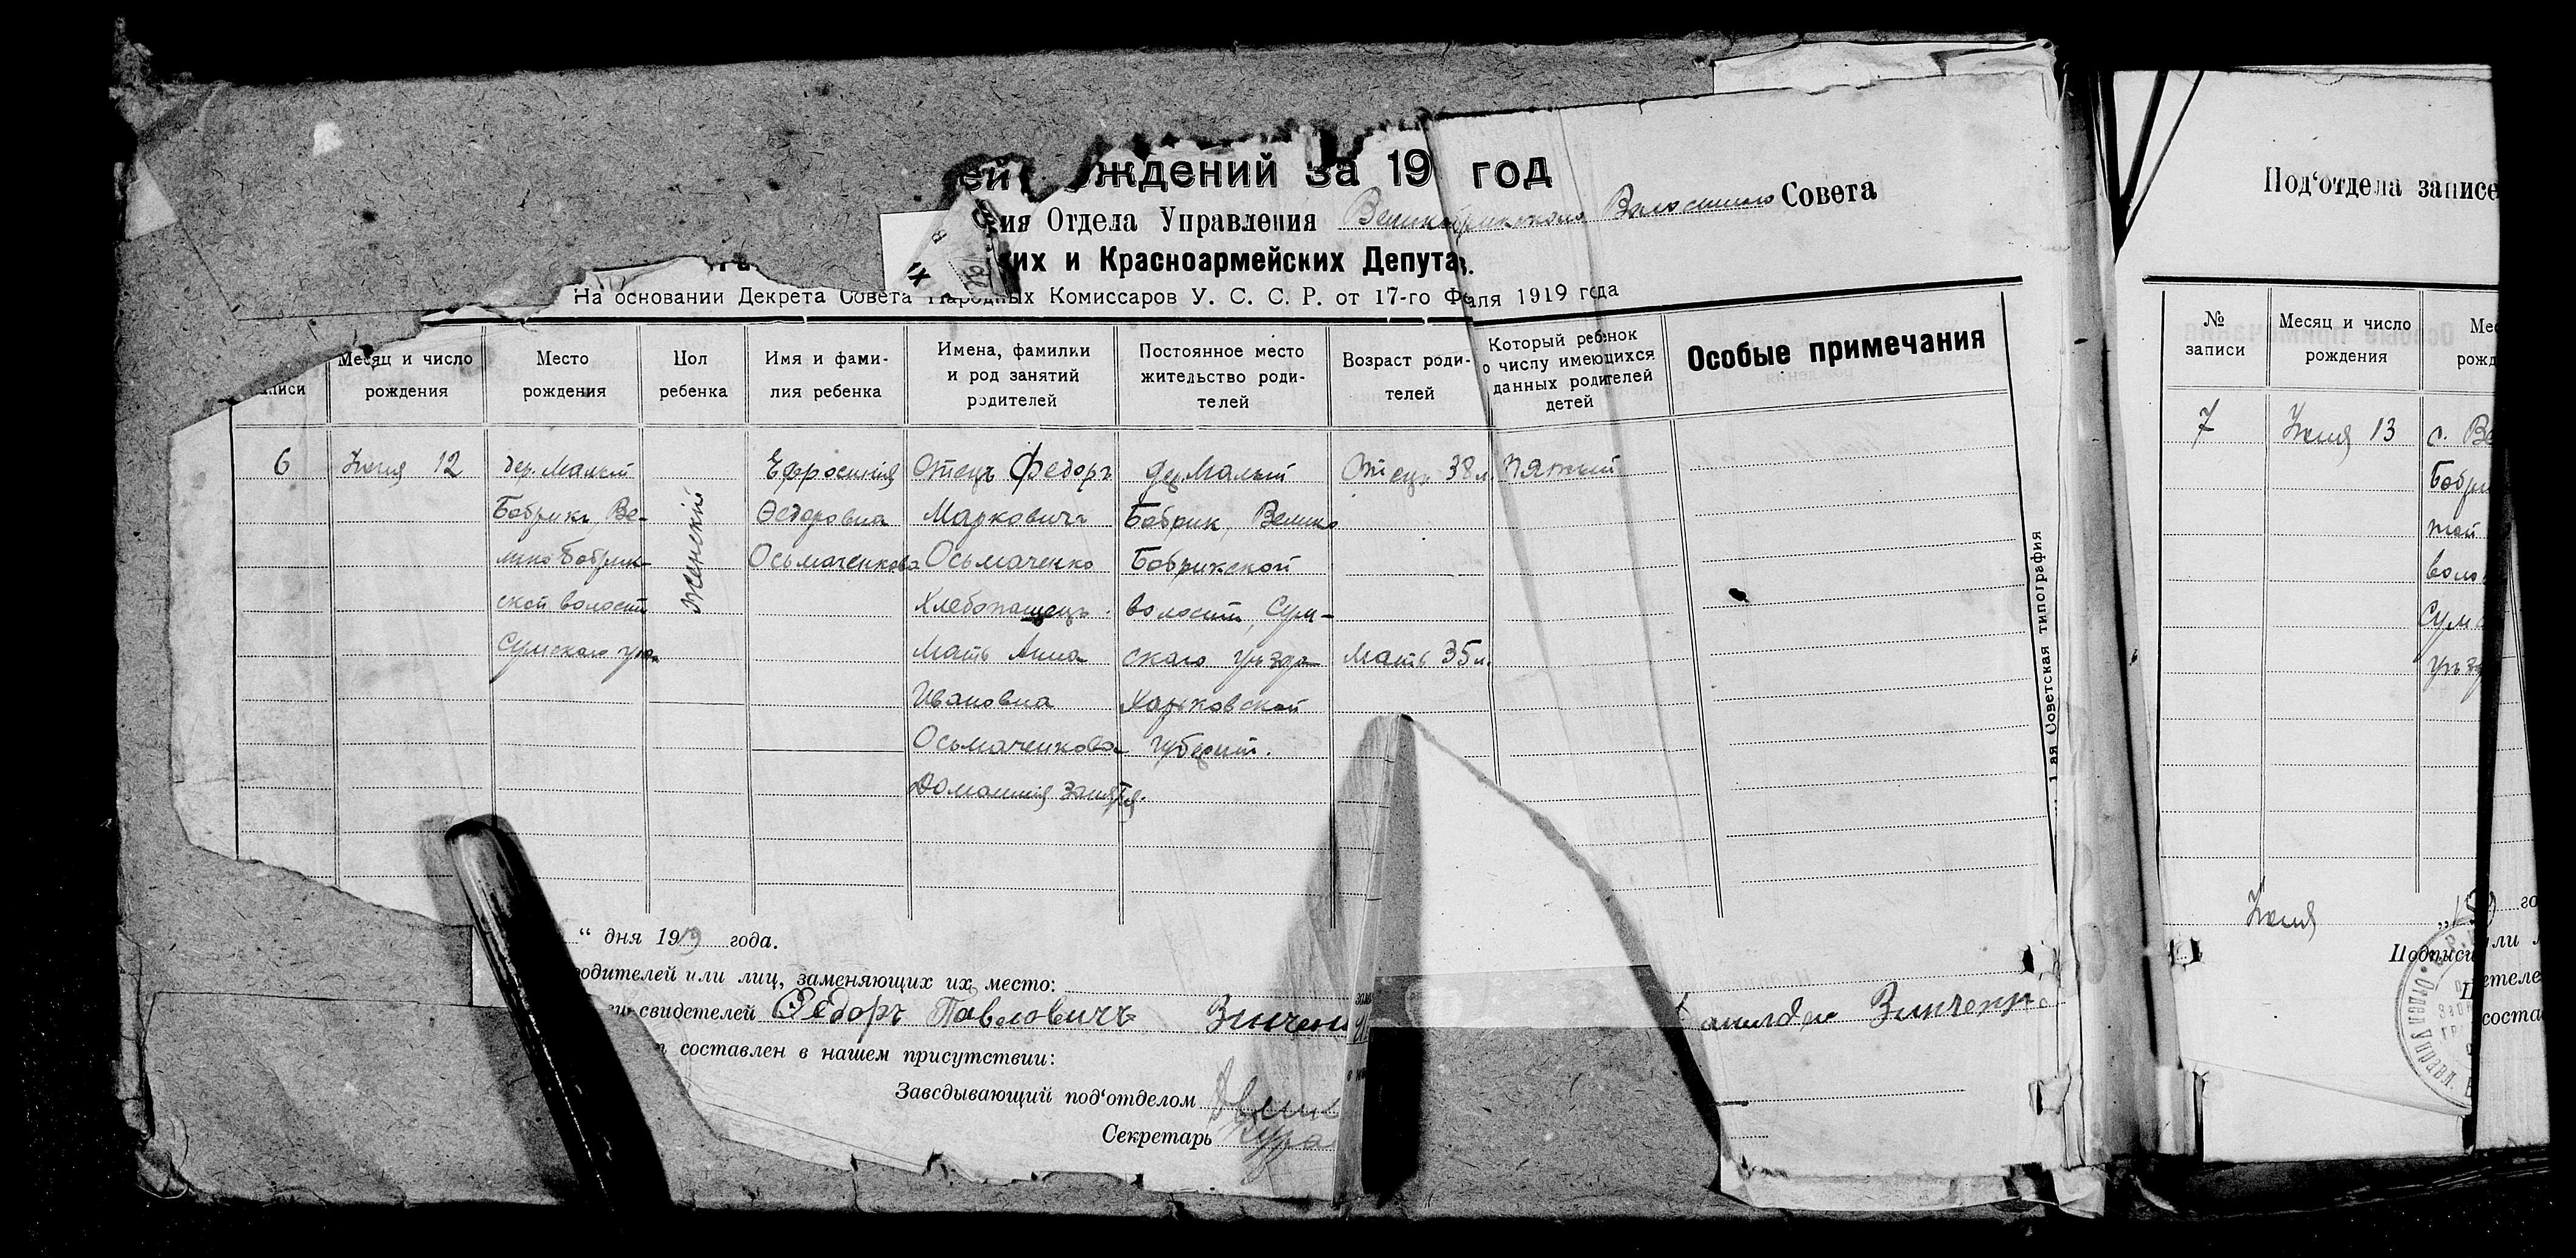 ждений за 19 год
Отдела Управления Великобрикского Волостного Совета
их и Красноармейских Депута
На основании Декрета Совета Народных Комиссаров У. С. С. Р. от 17-го 1919 года
Месяц и число рождения
Место рождения
Пол ребенка
Имя и фами-
лия ребенка
Имена, фамилии
и род занятий
родителей
Постоянное место
жительство роди-
телей
Возраст роди-
телей
Который ребенок
о числу имеющихся
данных родителей
детей
Особые примечания
6
Июня 12
дер. Малый
Бобрикъ, Ве-
лико Бобрик-
ской волости
Сумского
женский
Ефросиния
Федоровна
Осьмаченкова
Отецъ Федоръ
Марковичъ
Осьмаченко
Хлебопашецъ.
Мать Анна
Ивановна
Осьмаченкова
Домашния занятия.
дер. Малый
Бобрик, Велико
Бобрикской
волости, Сум-
скаго уезда
Харьковской
губернии.
Отецъ 38 л.
Мать 35 л.
пятый
1 ая Советская типография
“ дня 1919 года.
родителей или лиц, заменяющих их место:
свидетелей Федоръ Павловичъ Зинчен
Зинченко
составлен в нашем присутствии:
Заведывающий под‘отделом
Секретарь
Под‘отдела записе
№ записи
Месяц и число
рождения
7
Июня 13
с. Ве
Бобри
кой
воло
Сумс
уезд
Июня
Подписи